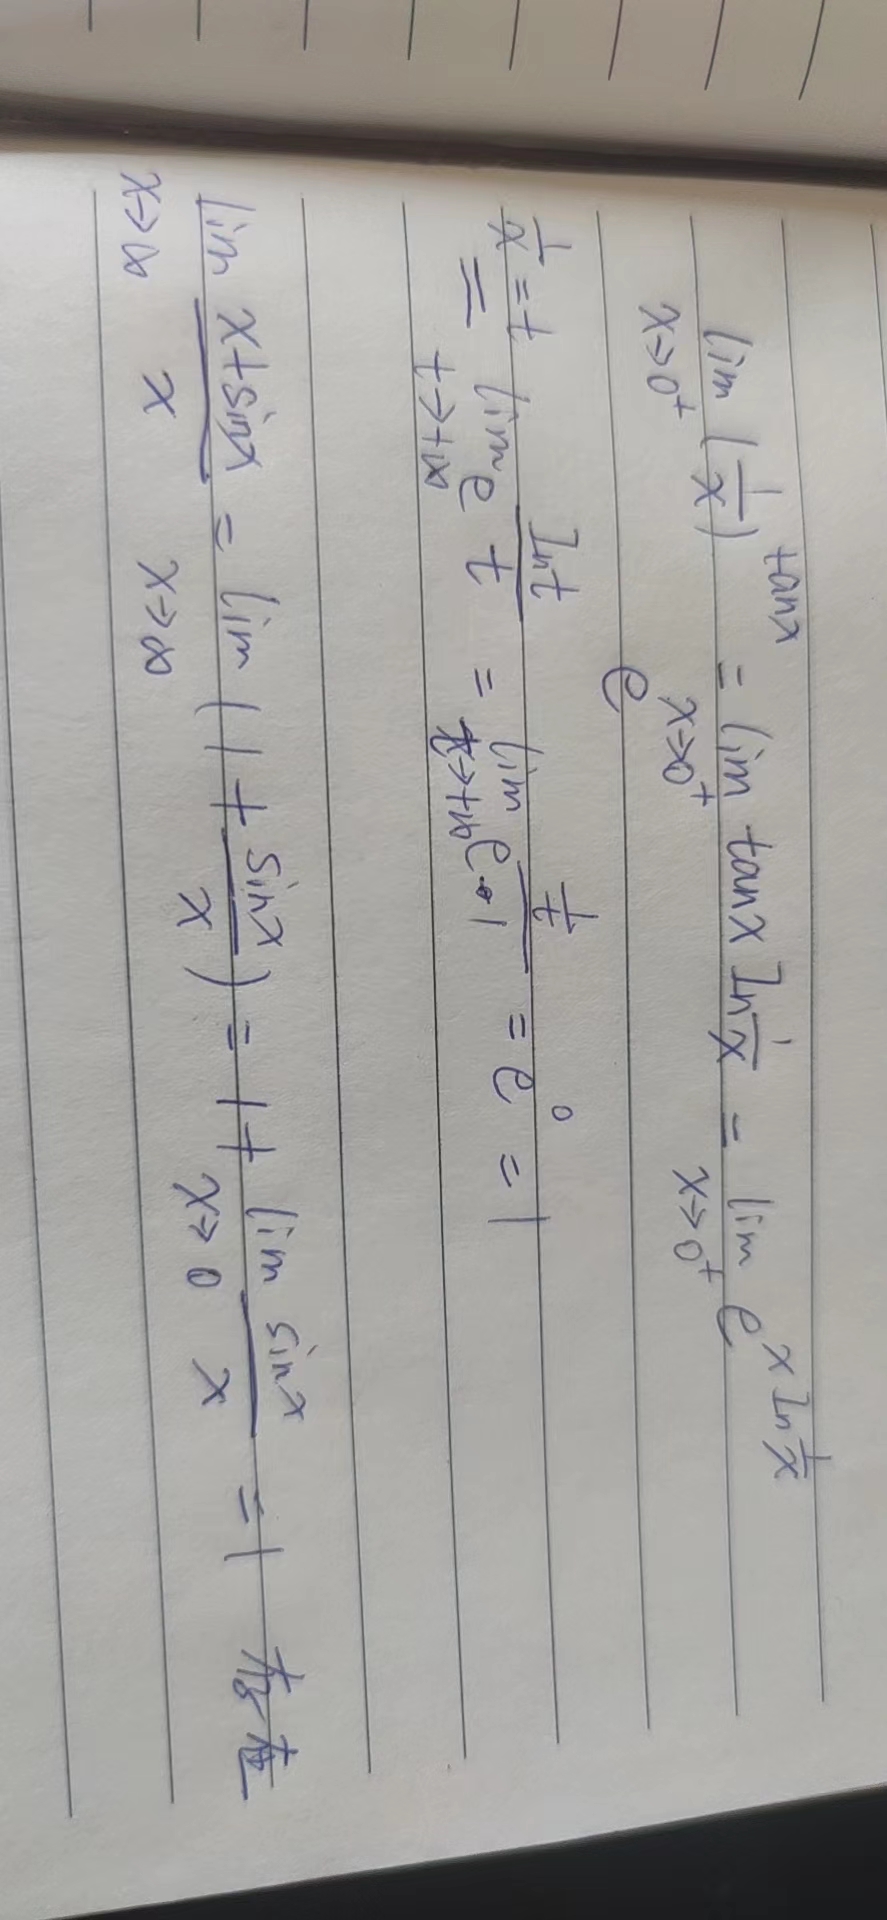 lim x→0⁺ (1/x)^tanx = lim x→0⁺ e^tanx ln 1/x = lim x→0⁺ e^x ln 1/x
1/x = t = lim t→+∞ e^ln t / t = lim t→+∞ e^(1/t)/1 = e^0 = 1
lim x→∞ (x+sinx)/x = lim x→∞ (1 + sinx/x) = 1 + lim x→0 sinx/x = 1 存在